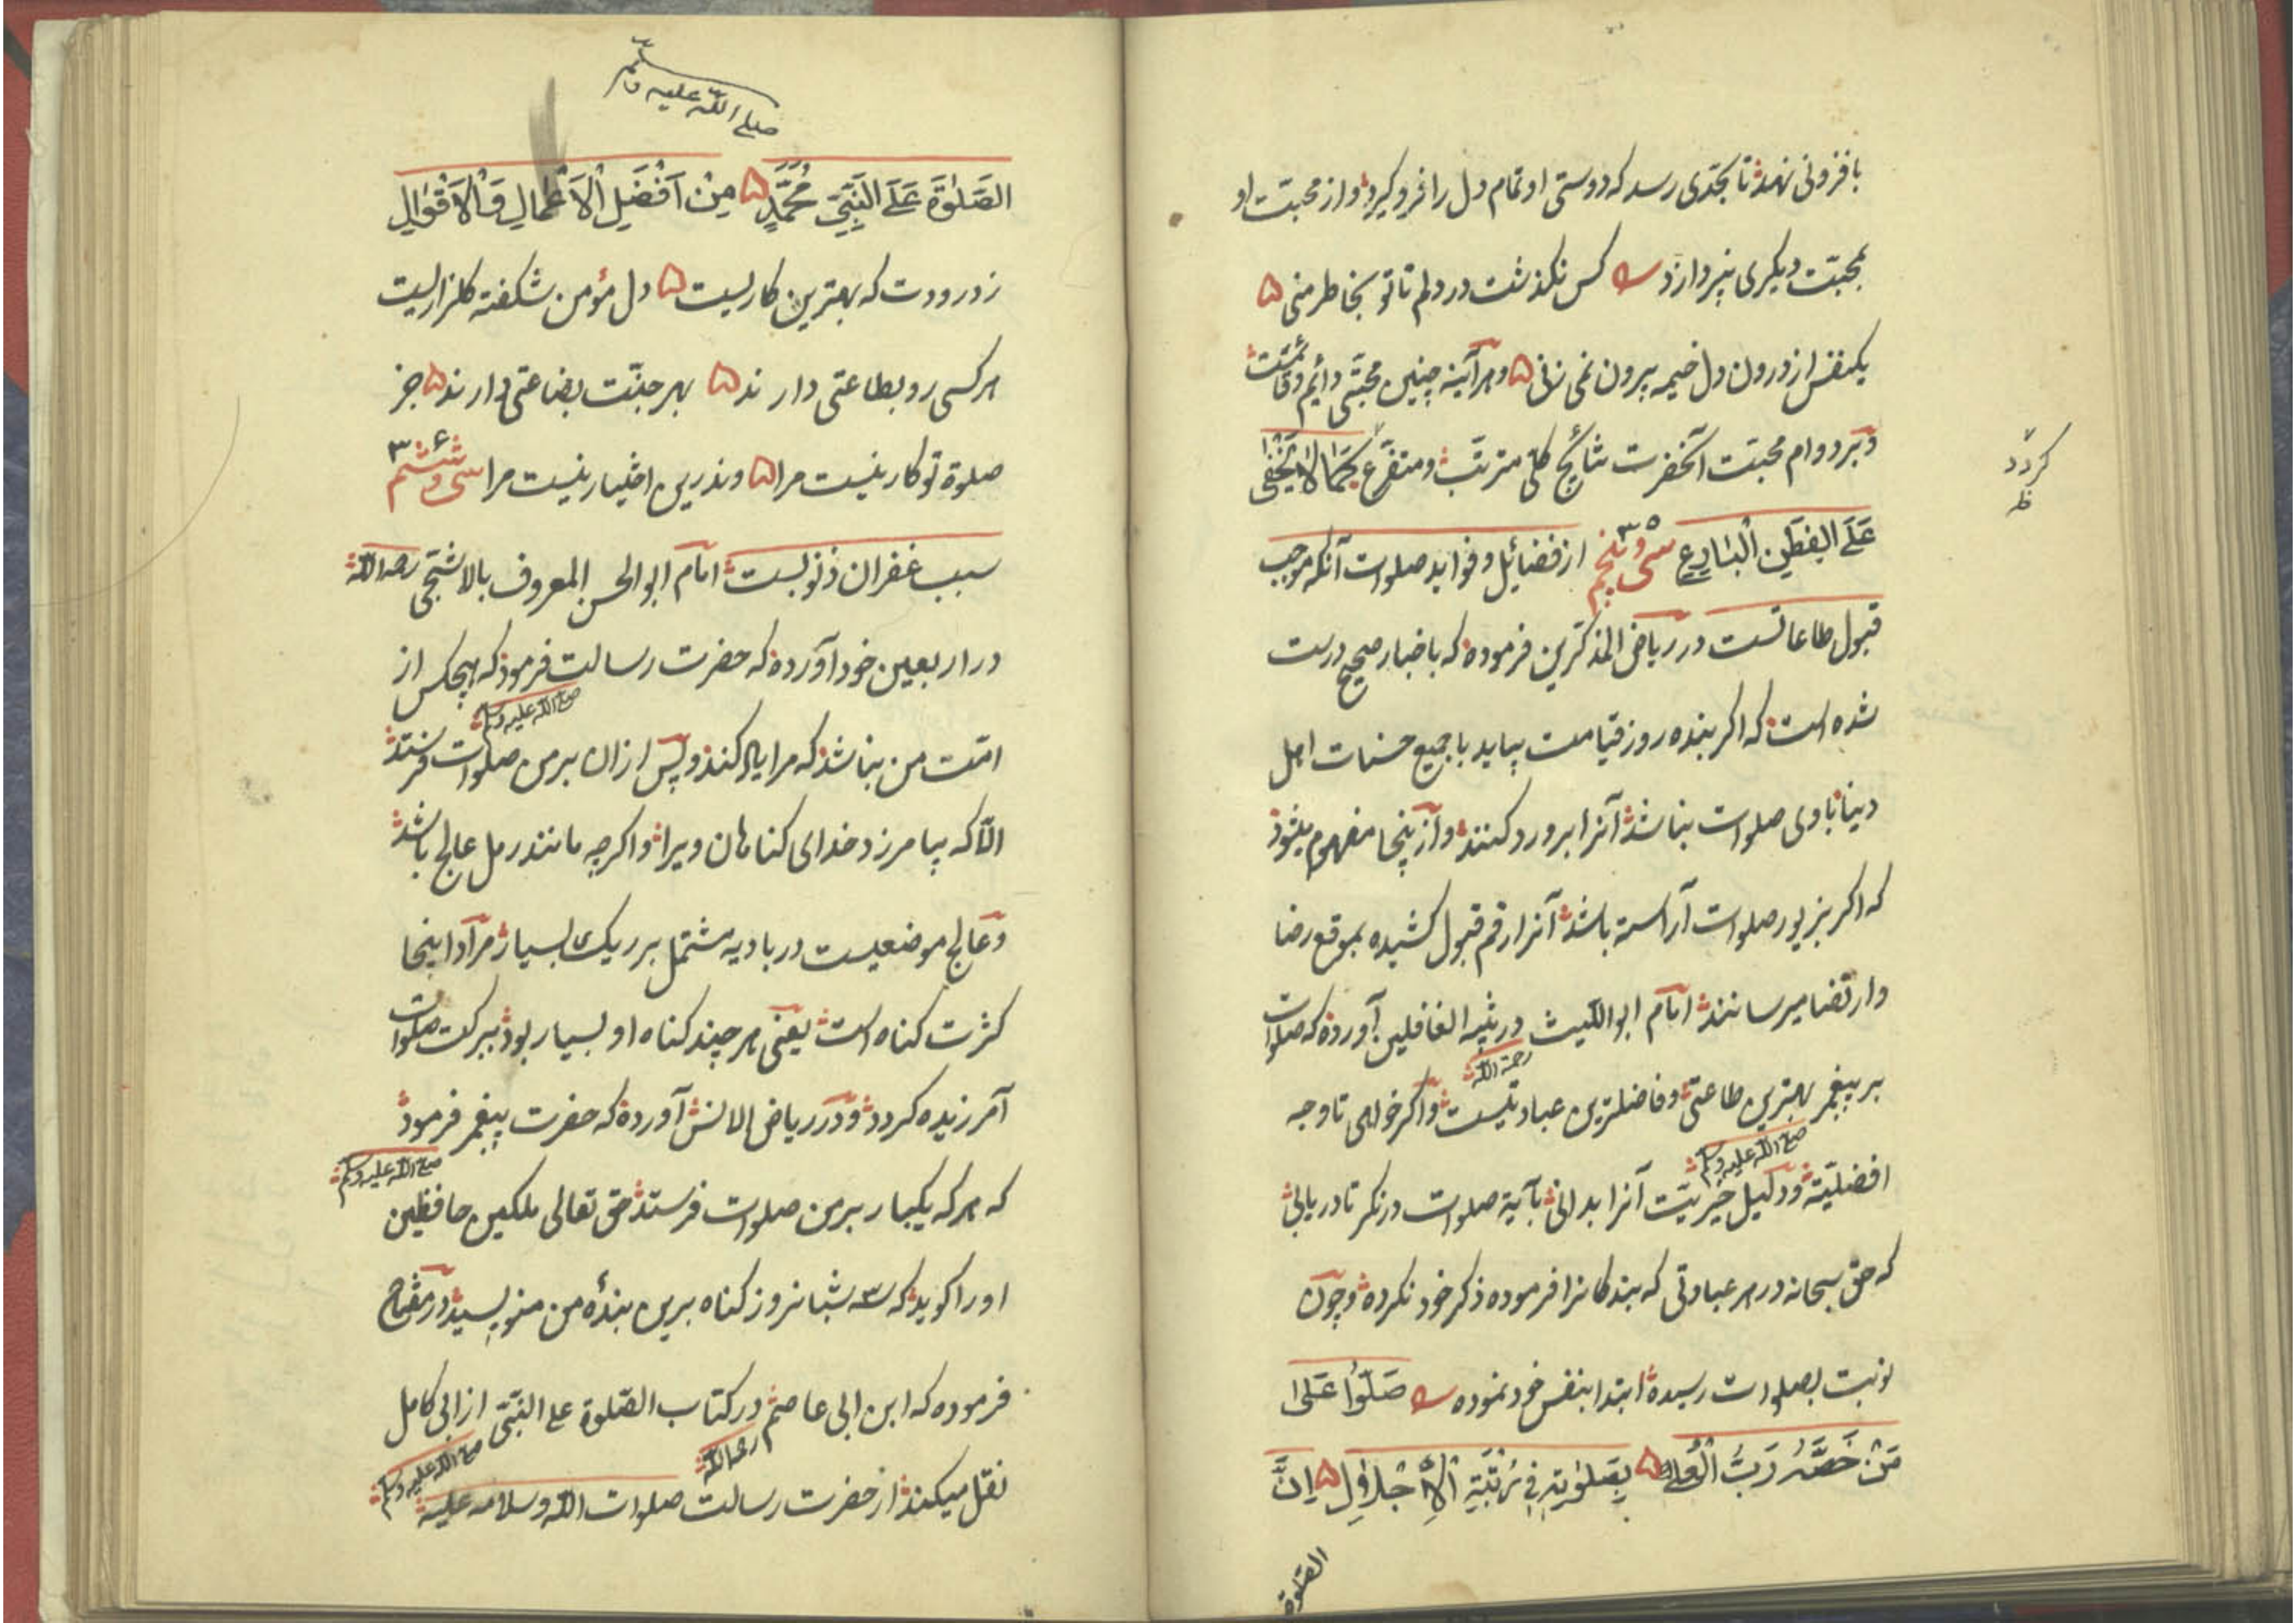 بافزونی نهد تا بحدی رسد که دوستی او تمام دل را فرو گیرد و از محبت او
بمحبت دیگری نپردازد کس نگذشت در دلم تا تو بخاطر منی
یکنفس از درون دل خیمه بیرون نمی زنی و هر آینه چنین محبتی دائم و
و بر دوام محبت آنحضرت نتائج کلی مترتب و متفرع کَمَا لَا یَخْفیٰ
گردد
ظ
عَلَی الفَطِنِ الْبَارِعِ سی و پنجم ۳۵ از فضائل و فواید صلوات آنکه موجب
قبول طاعاتست در ریاض المذکرین فرموده که باخبار صحیح درست
شده است که اکر بنده روز قیامت بیاید با جمیع حسنات اهل
دنیا با وی صلوات نباشد آنرا برو رد کنند و ازینجا مفهوم میشود
که اکر بزیور صلوات آراسته باشد آنرا رقم قبول کشیده بموقع رضا
و ارتضا میرسانند امام ابو اللیث رحمة الله در تنبیه الغافلین آورده که صلوات
بر پیغمبر صلی الله علیه وسلم بهترین طاعتی و فاضلترین عبادتیست و اکر خواهی تا وجه
افضلیّة و دلیل خیریّت آنرا بدانی بآیة صلوات درنکر تا دریابی
که حق سبحانه در هر عبادتی که بندکانرا فرموده ذکر خود نکرده و چون
نوبت بصلوات رسیده ابتدا بنفس خود نموده صَلّوُا عَلیٰ
مَنْ خَصَّهُ رَبُّ الْعُلیٰ بِصَلوٰتِهِ فِی رُتْبَةِ الْاِجْلَالِ اِنَّ
الصّلوة
صلی الله علیه وسلم
الصَّلٰوةَ عَلَی النَّبِیِّ مُحَمَّدٍ مِنْ اَفْضَلِ الْاَعْمَالِ وَالْاَقْوَالِ
زد درودت که بهترین کاریست دل مؤمن شکفته کلزاریست
هر کسی رو بطاعتی دارند بهر جنّت بضاعتی دارند جز
صلوة تو کار نیست مرا وندرین اختیار نیست مرا سی و ششم ۳۶
سبب غفران ذنوبست امام ابو الحسن المعروف بالاشجی رحمه الله
در اربعین خود آورده که حضرت رسالت صلی الله علیه وسلم فرمود که هیچکس از
امّت من نباشد که مرا یاد کند و پس ازان بر من صلوات فرستد
الّا که بیامرزد خدای کناهان ویرا و اکرچه مانند رمل عالج باشد
و عالج موضعیست در بادیه مشتمل بر ریک بسیار مراد اینجا
کثرت کناه است یعنی هر چند کناه او بسیار بود ببرکت صلوات
آمرزیده کردد و در ریاض الانس آورده که حضرت پیغمبر صلی الله علیه وسلم فرمود
که هر که یکبار بر من صلوات فرستد حق تعالی ملکین حافظین
او را کوید که سه شبانروز کناه برین بندهٔ من منویسید در مفتاح
فرموده که ابن ابی عاصم رحمه الله در کتاب الصّلوة علی النّبی صلی الله علیه وسلم از ابی کامل
نقل میکند از حضرت رسالت صلوات الله وسلامه علیه